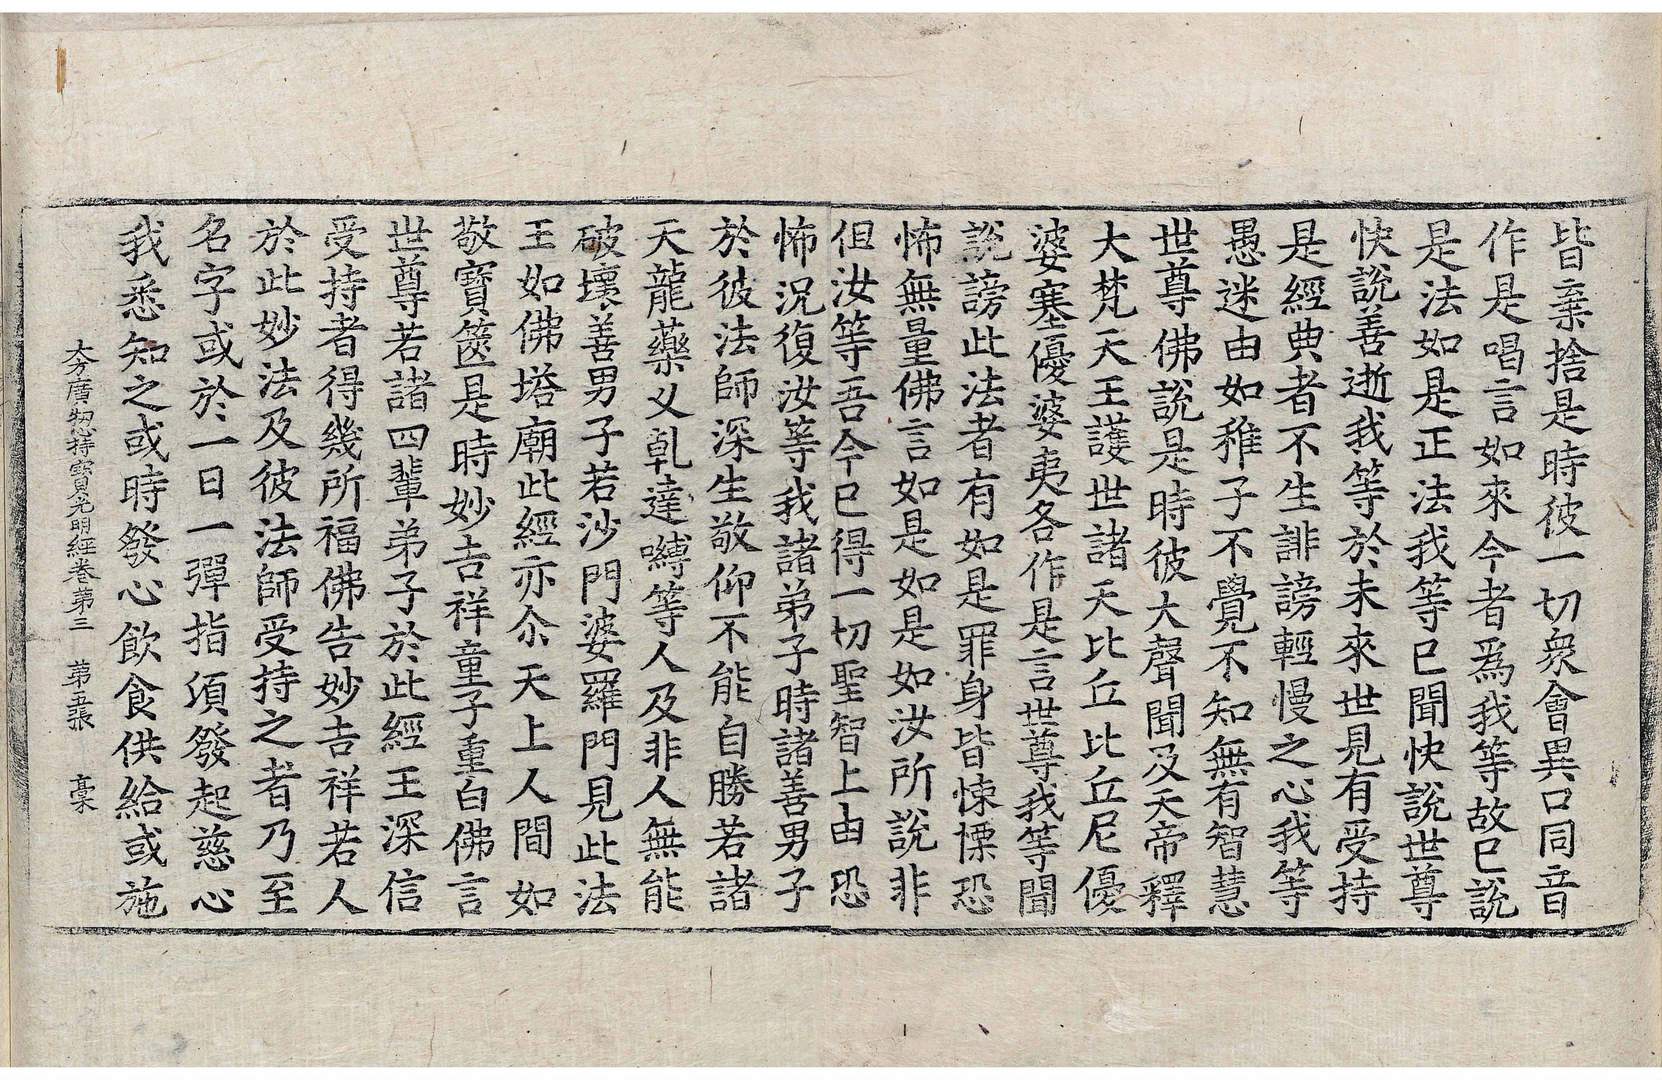 皆棄捨是時彼一切衆會異口同音
作是唱言如來今者爲我等故已說
是法如是正法我等已聞快說世尊
快說善逝我等於未來世見有受持
是經典者不生誹謗輕慢之心我等
愚迷由如稚子不覺不知無有智慧
世尊佛說是時彼大聲聞及天帝釋
大梵天王護世諸天比丘比丘尼優
婆塞優婆夷各作是言世尊我等聞
說謗此法者有如是罪身皆悚慄恐
怖無量佛言如是如是如汝所說非
但汝等吾今已得一切聖智上由恐
怖況復汝等我諸弟子時諸善男子
於彼法師深生敬仰不能自勝若諸
天龍藥叉乹達嚩等人及非人無能
破壞善男子若沙門婆羅門見此法
王如佛塔廟此經亦尒天上人間如
敬寶篋是時妙吉祥童子重白佛言
世尊若諸四輩弟子於此經王深信
受持者得幾所福佛告妙吉祥若人
於此妙法及彼法師受持之者乃至
名字或於一日一彈指須發起慈心
我悉知之或時發心飲食供給或施
大方廣揔持寶光明經卷第三　第五張　槀